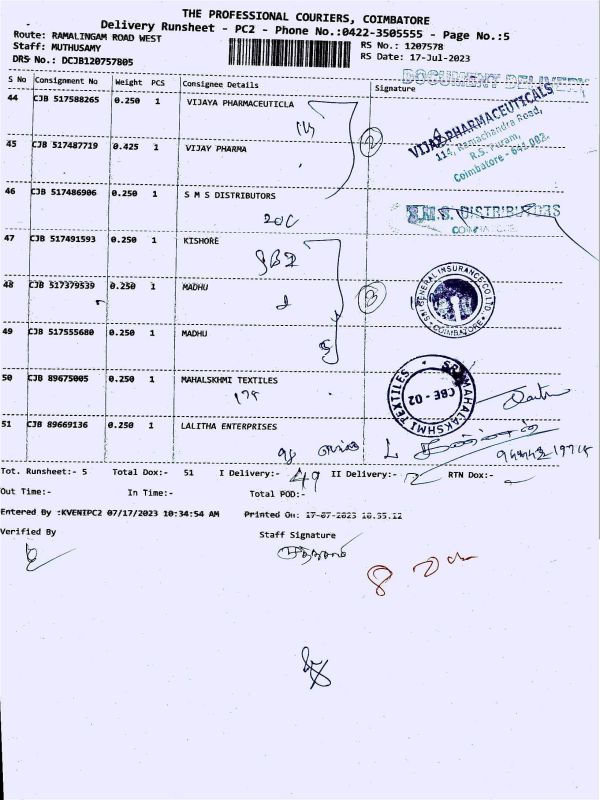 THE PROFESSIONAL COURIERS, COIMBATORE
Delivery Runsheet - PC2 - Phone No.:0422-3505555 - Page No.:5
Route: RAMALINGAM ROAD WEST
RS No.: 1207578
Staff: MUTHUSAMY
RS Date: 17-Jul-2023
DRS No.: DCJB120757805
DOCUMENT DELIVERY
S No Consignment No Weight PCS Consignee Details Signature
44 CJB 517588265 0.250 1 VIJAYA PHARMACEUTICLA
VIJAY PHARMACEUTICALS
114, Ramachandra Road,
R.S. Puram,
Coimbatore - 641 002.
2
45 CJB 517487719 0.425 1 VIJAY PHARMA
46 CJB 517486906 0.250 1 S M S DISTRIBUTORS
S.M.S. DISTRIBUTORS
20C
47 CJB 517491593 0.250 1 KISHORE
SBI
SBI GENERAL INSURANCE CO. LTD.
COIMBATORE
48 CJB 517379539 0.250 1 MADHU
3
49 CJB 517555680 0.250 1 MADHU
50 CJB 89675005 0.250 1 MAHALSKHMI TEXTILES
SRI MAHALAKSHMI TEXTILES
CBE - 02
51 CJB 89669136 0.250 1 LALITHA ENTERPRISES
Tot. Runsheet:- 5 Total Dox:- 51 I Delivery:- 49 II Delivery:- 2 RTN Dox:-
Out Time:- In Time:- Total POD:-
Entered By :KVENIPC2 07/17/2023 10:34:54 AM Printed On: 17-07-2023 10.35.12
Verified By Staff Signature